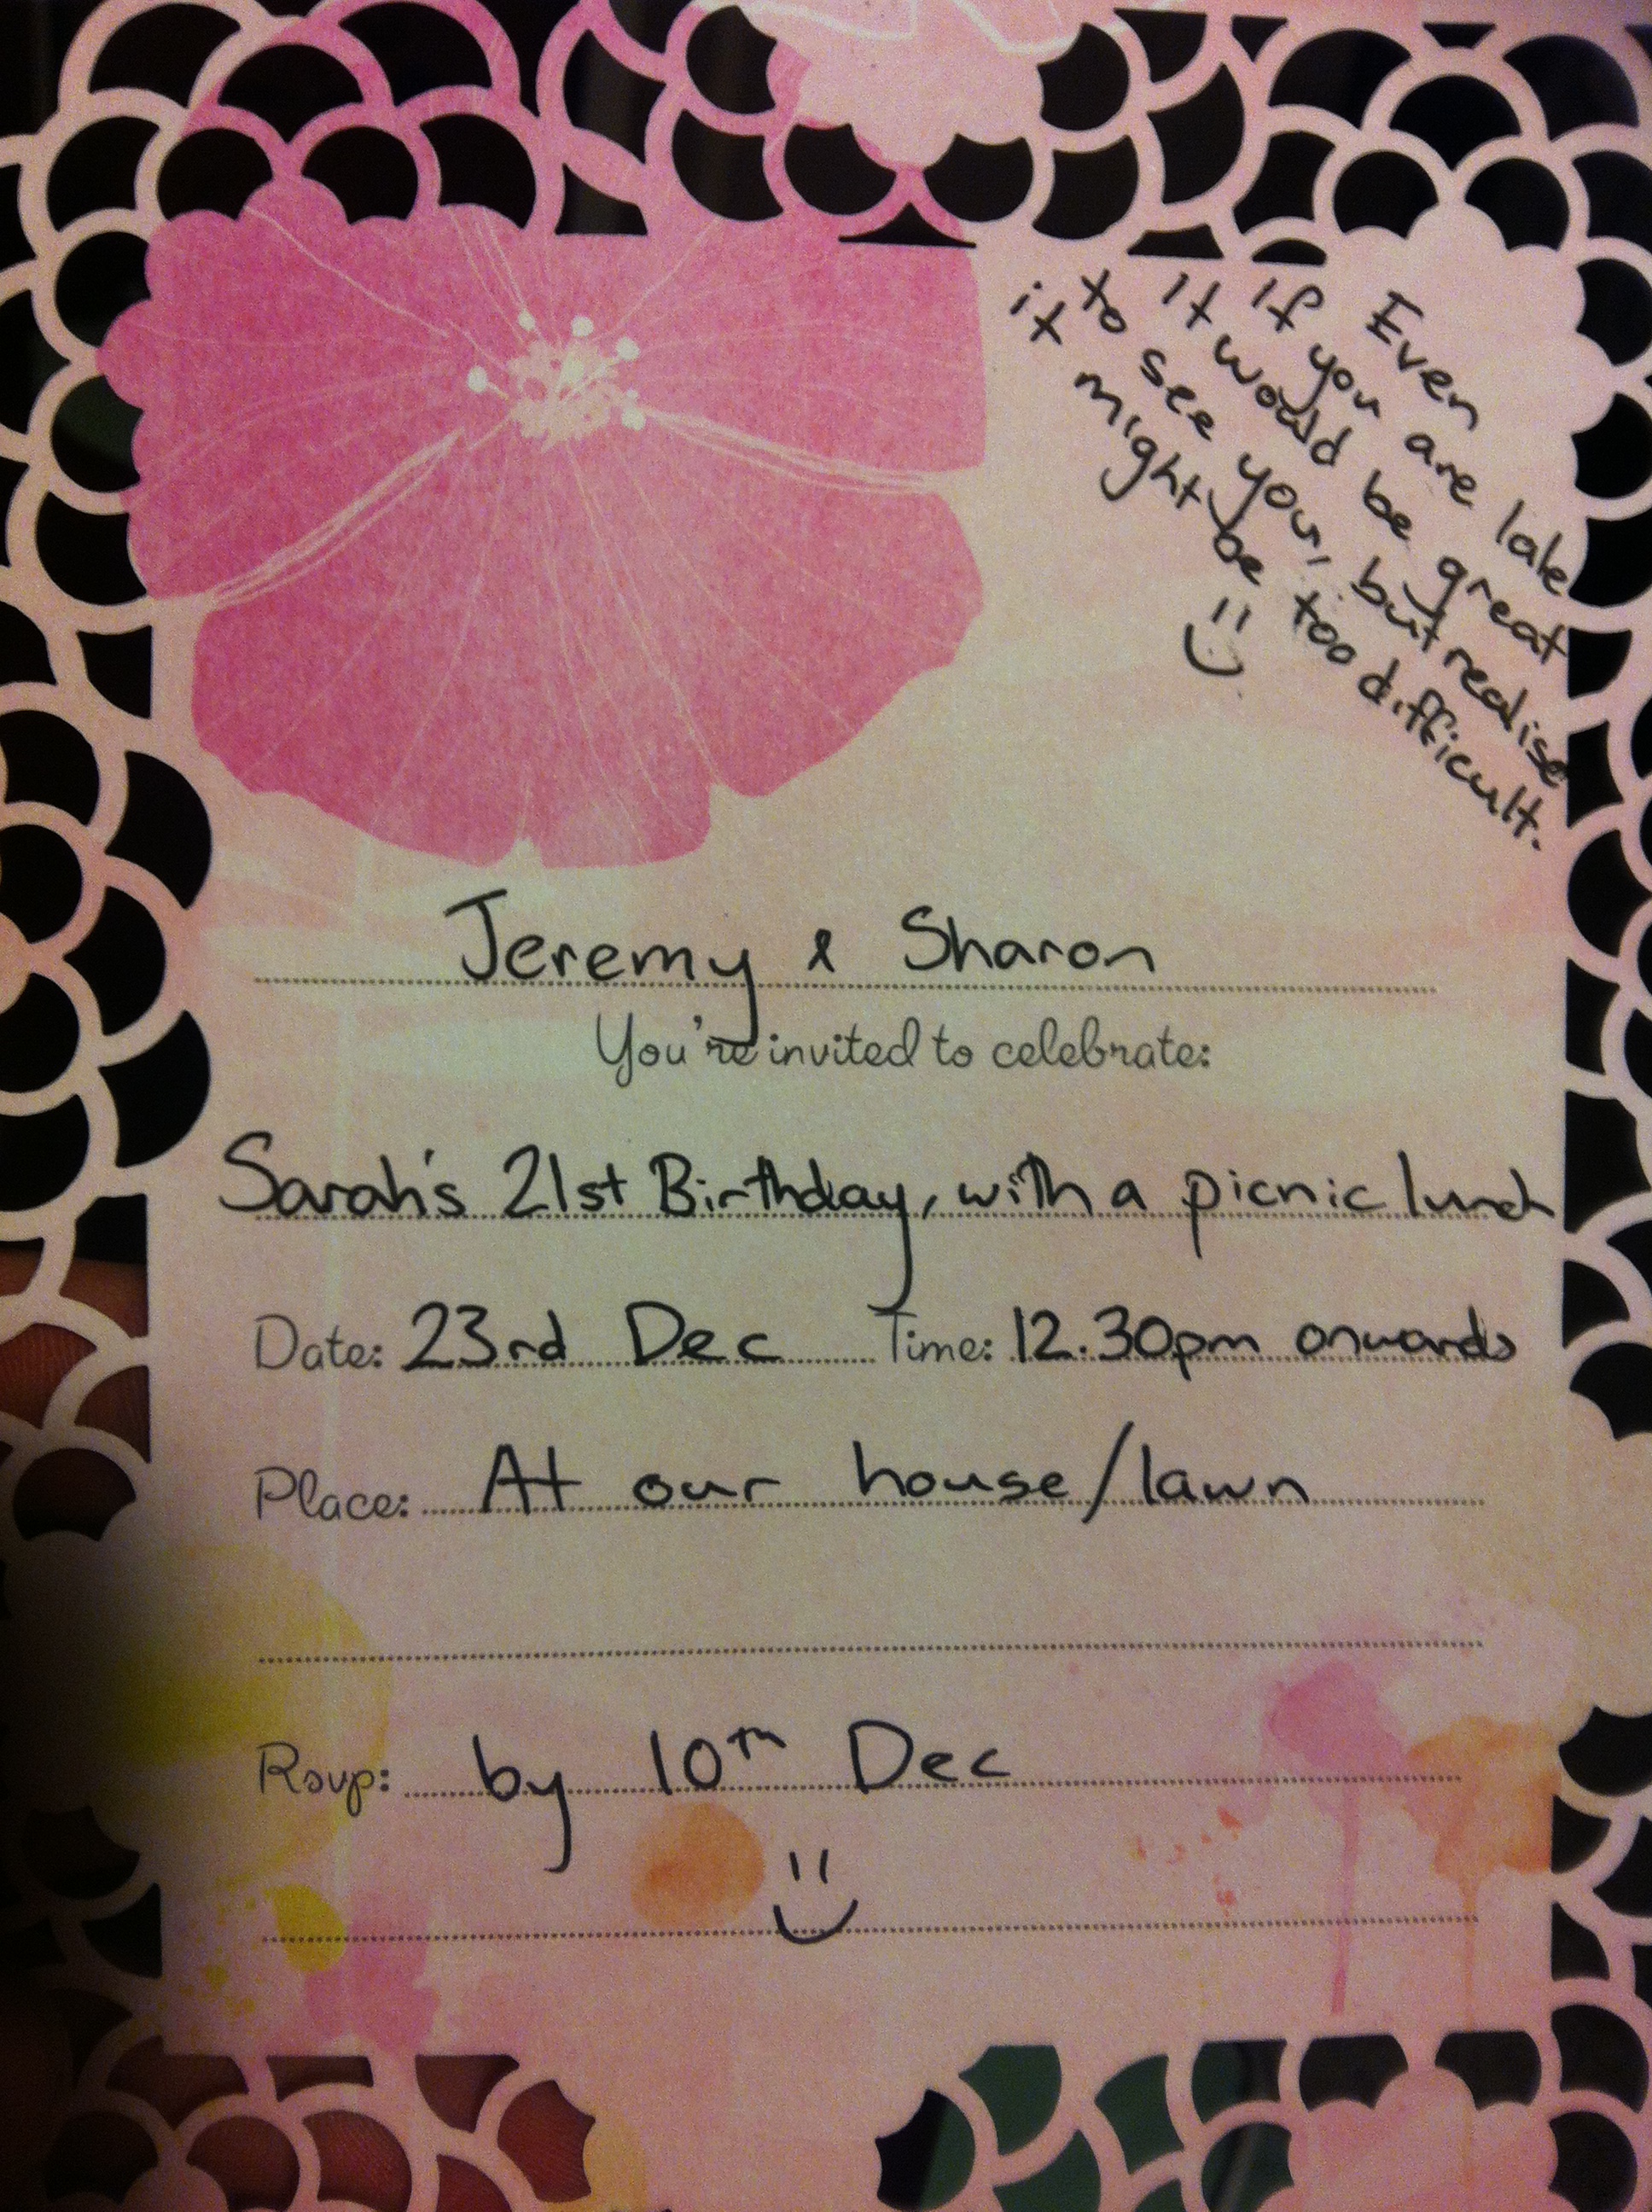 Even
If you are late
It would be great
to see you, but realise
it might be too difficult.
Jeremy & Sharon
You're invited to celebrate:
Sarah's 21st Birthday, with a picnic lunch
Date: 23rd Dec Time: 12.30pm onwards
Place: At our house/lawn
Rsvp: by 10th Dec